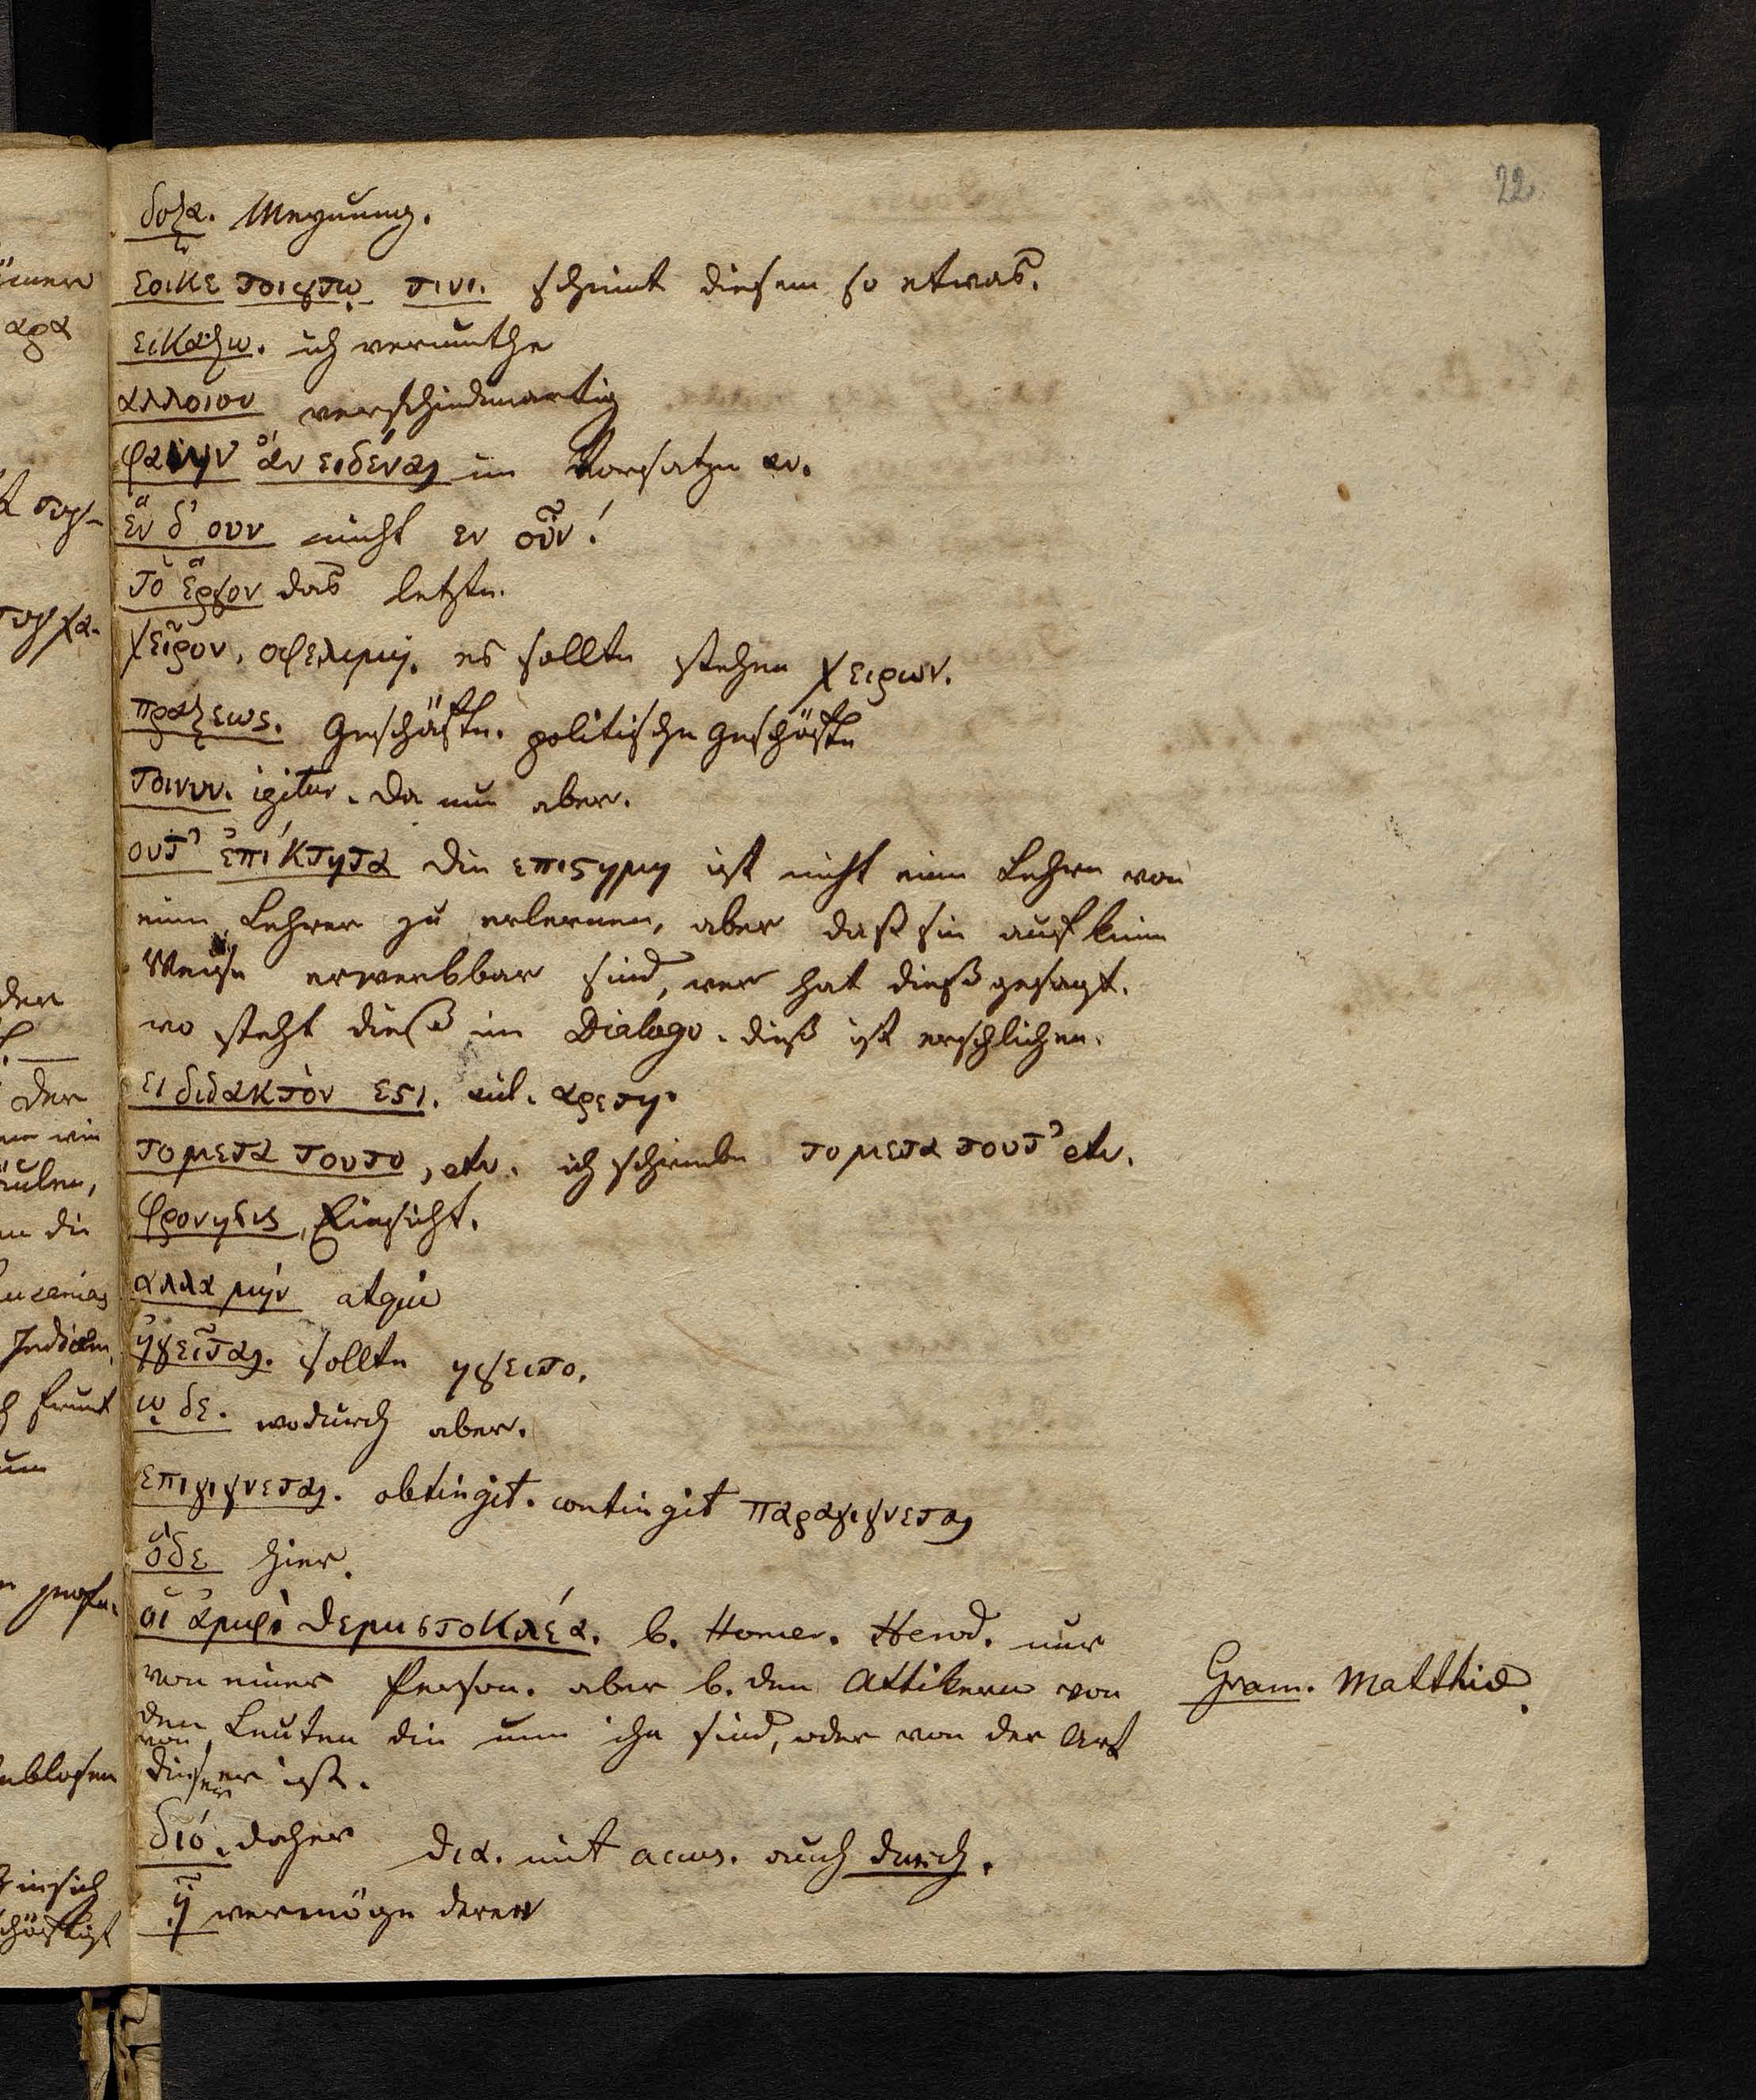 22.
δοξα. Meynung.
εοικε τοιουτω τινι. scheint diesem so etwas.
εικαζω. ich vermuthe
αλλοιον verschiedenartig
φαιην ἄν ειδέναι im Vorsatze αν.
ἕν δ' ουν nicht εν οῦν!
τὸ ἔργον das letzte.
χεῖρον, es sollte stehen χειρων.
πραξεως. Geschäfte. politische Geschäfte
τοινυν. igitur. da nun aber.
ουτ' ἐπίκτητα Die επιστημη ist nicht eine Lehre von
einem Lehrer zu erlernen, aber daß sie auf keine
Weise erwerbbar sind, wer hat dieß gesagt.
wo steht dieß im Dialogo. dieß ist erschlichen.
ει διδακτὸν εστι. αρετη.
το μετα τουτο, etc. ich schreibe το μετα τουτ' etc.
φρονησις, Einsicht.
αλλα μήν atqui
ἡγεῖται. sollte ηγειτο.
ω δε. wodurch aber.
επιγιγνεται. obtingit. contingit παραγιγνεται
ὅδε hier.
οἱ ἀμφὶ Θεμιστοκλέα. b. Homer. Herod. nur
von einer Person. aber b. den Attikern von
Gram. Matthiä.
den Leuten die um ihn sind, oder von der Art
dieser ist.
διό. daher δια. mit accus. auch durch.
ᾗ vermöge deren